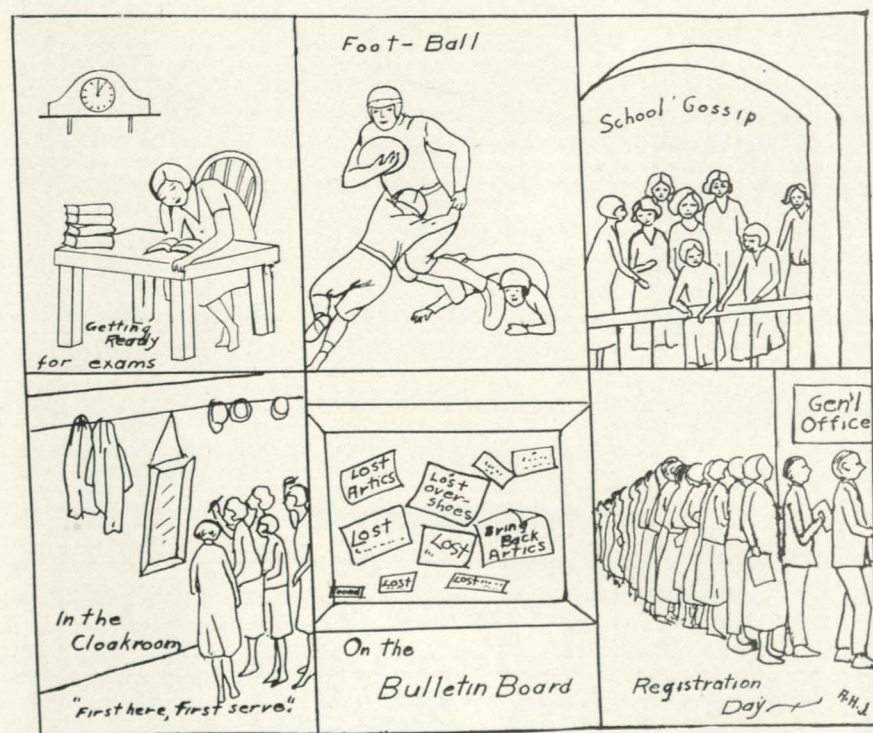 Getting
Ready
for exams
Foot-Ball
School Gossip
In the
Cloakroom
"First here, first serve".
Lost
Artics
Lost
over-
shoes
Lost
Lost
Bring
Back
Artics
Found
Lost
Lost
On the
Bulletin Board
Gen'l
Office
Registration
Day
R.H.J.